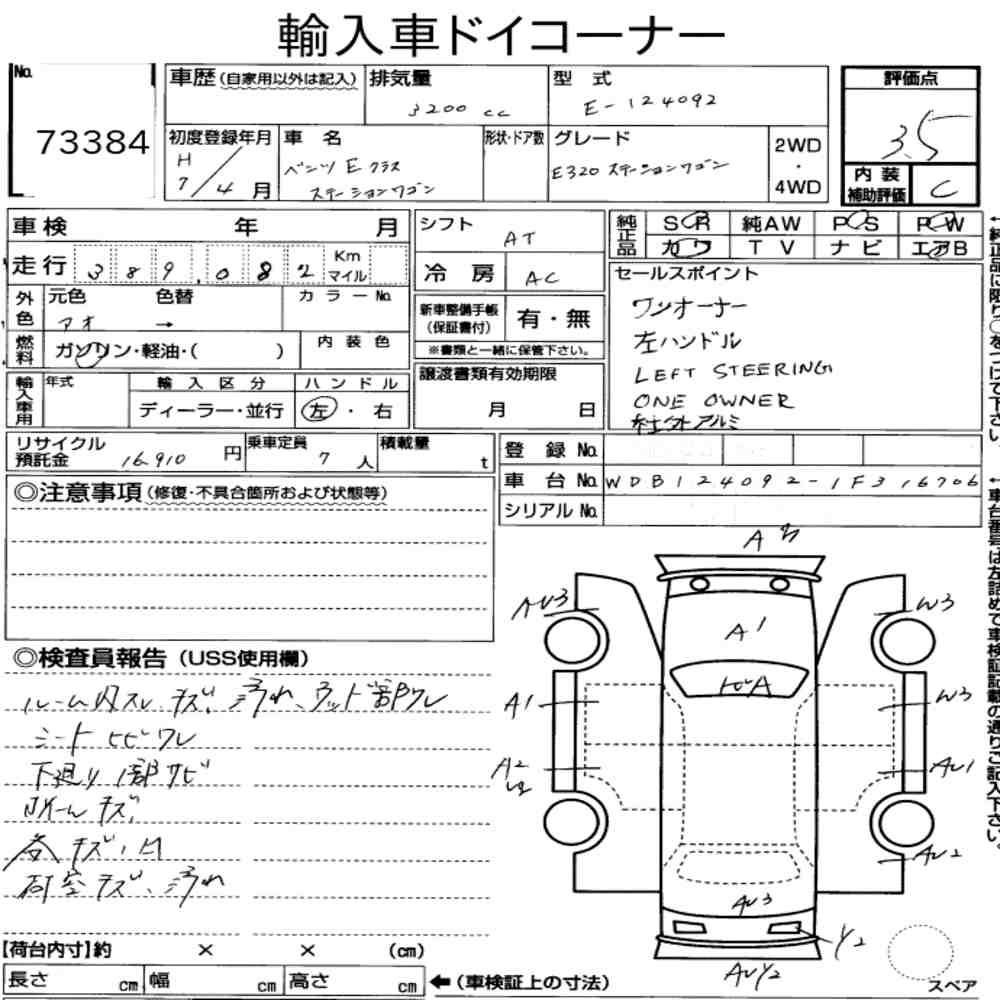 輸入車ドイコーナー
No. 73384
車歴(自家用以外は記入)
排気量 3200 cc
型式 E-124092
評価点 3.5
内装補助評価 C
初度登録年月 H 7/4月
車名 ベンツ Eクラス ステーションワゴン
形状・ドア数
グレード E320 ステーションワゴン
2WD・4WD
車検 年 月
走行 389,082 Km マイル
外色 元色 アオ 色替 → カラーNo.
燃料 ガソリン・軽油・( ) 内装色
輸入車用 年式 輸入区分 ディーラー・並行 ハンドル 左・右
シフト AT
冷房 AC
新車整備手帳(保証書付) 有・無
※書類と一緒に保管下さい。
譲渡書類有効期限 月 日
純正品 SR 純AW PS PW
カワ TV ナビ エアB
セールスポイント
ワンオーナー
左ハンドル
LEFT STEERING
ONE OWNER
社外アルミ
←純正品に限り○をつけて下さい。
リサイクル預託金 16,910円
乗車定員 7人
積載量 t
登録No.
車台No. WDB124092-1F316706
シリアルNo.
←車台番号は左詰めで車検証記載の通りご記入下さい。
◎注意事項(修復・不具合箇所および状態等)
◎検査員報告(USS使用欄)
ルーム内スレ キズ、汚れ、ウッド部ワレ
シート ヒビワレ
下廻り 1部サビ
ホイール キズ
各キズ、凹
荷室キズ、汚れ
A3
AU3
W3
A1
トビA
A1
W3
A2
AU1
AU2
AU3
Y2
AUY2
スペア
【荷台内寸】約 × × (cm)
長さ cm 幅 cm 高さ cm
←(車検証上の寸法)